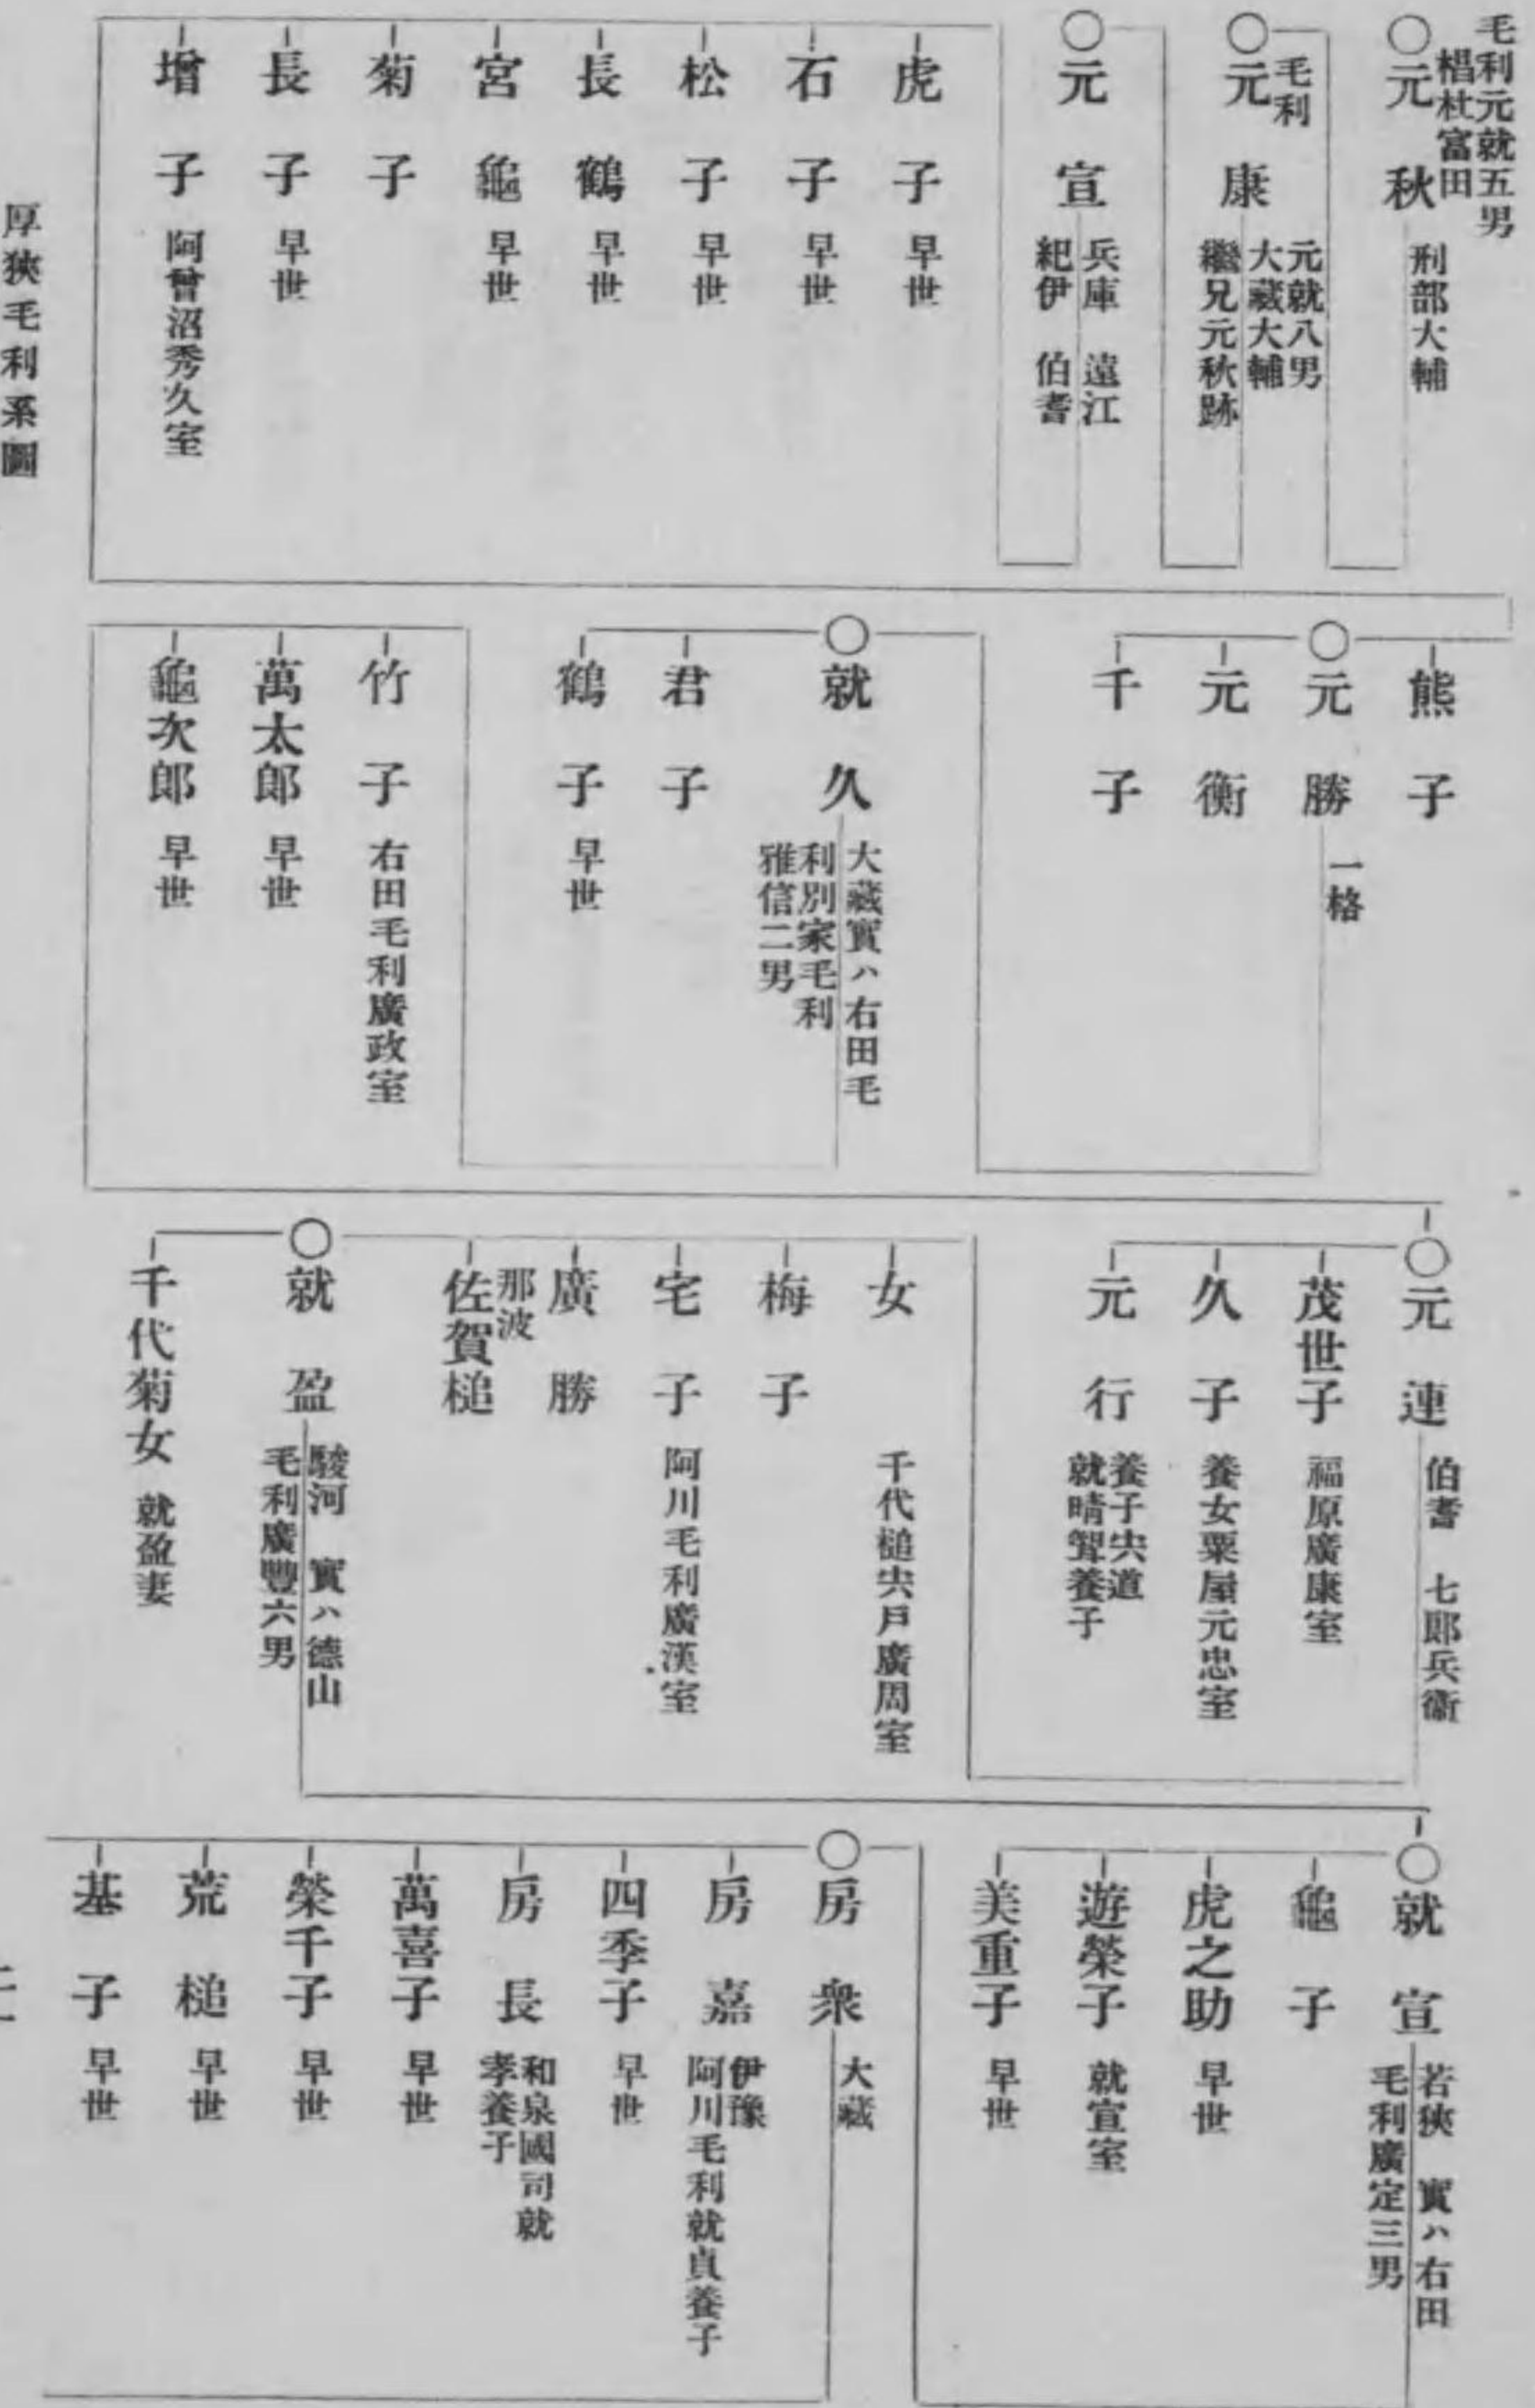 毛利元就五男
椙杜富田
〇元秋
刑部大輔
毛利
〇元康
元就八男
大藏大輔
繼兄元秋跡
〇元宣
兵庫 遠江
紀伊 伯耆
虎子 早世
石子 早世
松子 早世
長鶴 早世
宮龜 早世
菊子
長子 早世
增子 阿曾沼秀久室
厚狹毛利系圖
熊子
〇元勝 一格
元衡
千子
〇就久
大藏實ハ右田毛
利別家毛利
雅信二男
君子
鶴子 早世
竹子 右田毛利廣政室
萬太郎 早世
龜次郎 早世
〇元連 伯耆 七郎兵衞
茂世子 福原廣康室
久子 養女粟屋元忠室
元行
養子宍道
就晴聟養子
女 千代槌宍戶廣周室
梅子
宅子 阿川毛利廣漢室
廣勝
那波
佐賀槌
〇就盈
駿河 實ハ德山
毛利廣豐六男
千代菊女 就盈妻
〇就宣
若狹 實ハ右田
毛利廣定三男
龜子
虎之助 早世
遊榮子 就宣室
美重子 早世
〇房衆 大藏
房嘉
伊豫
阿川毛利就貞養子
四季子 早世
房長
和泉國司就
孝養子
萬喜子 早世
榮千子 早世
荒槌 早世
基子 早世